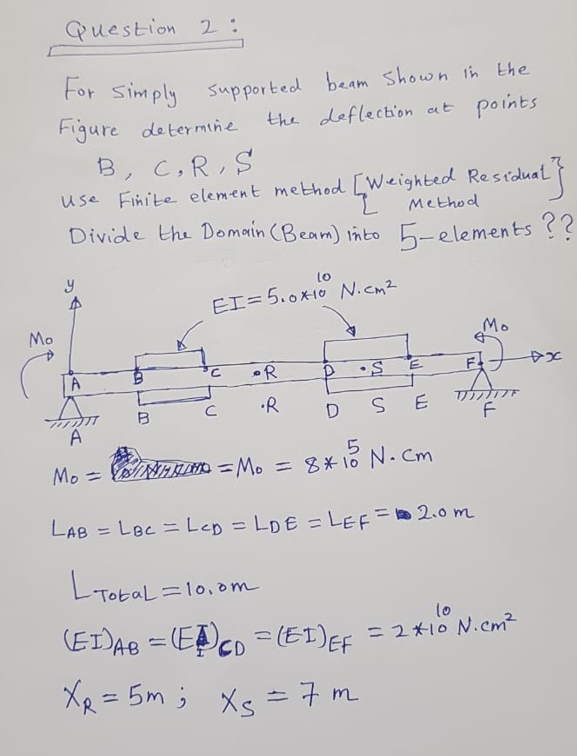 Question 2 :
For Simply supported beam Shown in the
Figure determine the deflection at points
B, C, R, S
Use Finite element method [Weighted Residual
Method]
Divide the Domain (Beam) into 5-elements ??
y
EI = 5.0*10^10 N.cm²
Mo
Mo
A B C •R D •S E F x
B C •R D S E F
A
Mo = = Mo = 8*10^5 N.cm
LAB = LBC = LCD = LDE = LEF = 2.0 m
LTotal = 10.0m
(EI)AB = (EI)CD = (EI)EF = 2*10^10 N.cm²
XR = 5m ; XS = 7 m